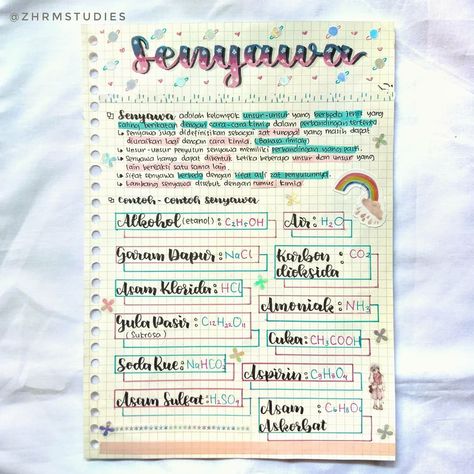 @ZHRMSTUDIES
Senyawa
Senyawa adalah kelompok unsur-unsur yang berbeda jenis yang
saling berikatan dengan cara-cara kimia dalam perbandingan tertentu
Senyawa juga didefinitikan sebagai zat tunggal yang masih dapat
diuraikan lagi dengan cara kimia.
Unsur-unsur penyusun senyawa memiliki perbandingan yang pasti.
Senyawa hanya dapat dibentuk ketika beberapa unsur dan unsur yang
lain bereaksi satu sama lain.
Sifat senyawa berbeda dengan sifat asli zat penyusunnya.
Lambang senyawa disebut dengan rumus kimia
Contoh-contoh senyawa
Alkohol (etanol): C₂H₅OH
Air: H₂O
Garam Dapur: NaCl
Karbon dioksida: CO₂
Asam Klorida: HCl
Amoniak: NH₃
Gula Pasir: C₁₂H₂₂O₁₁
(Sukrosa)
Cuka: CH₃COOH
Soda Kue: NaHCO₃
Aspirin: C₉H₈O₄
Asam Sulfat: H₂SO₄
Asam Askorbat: C₆H₈O₆